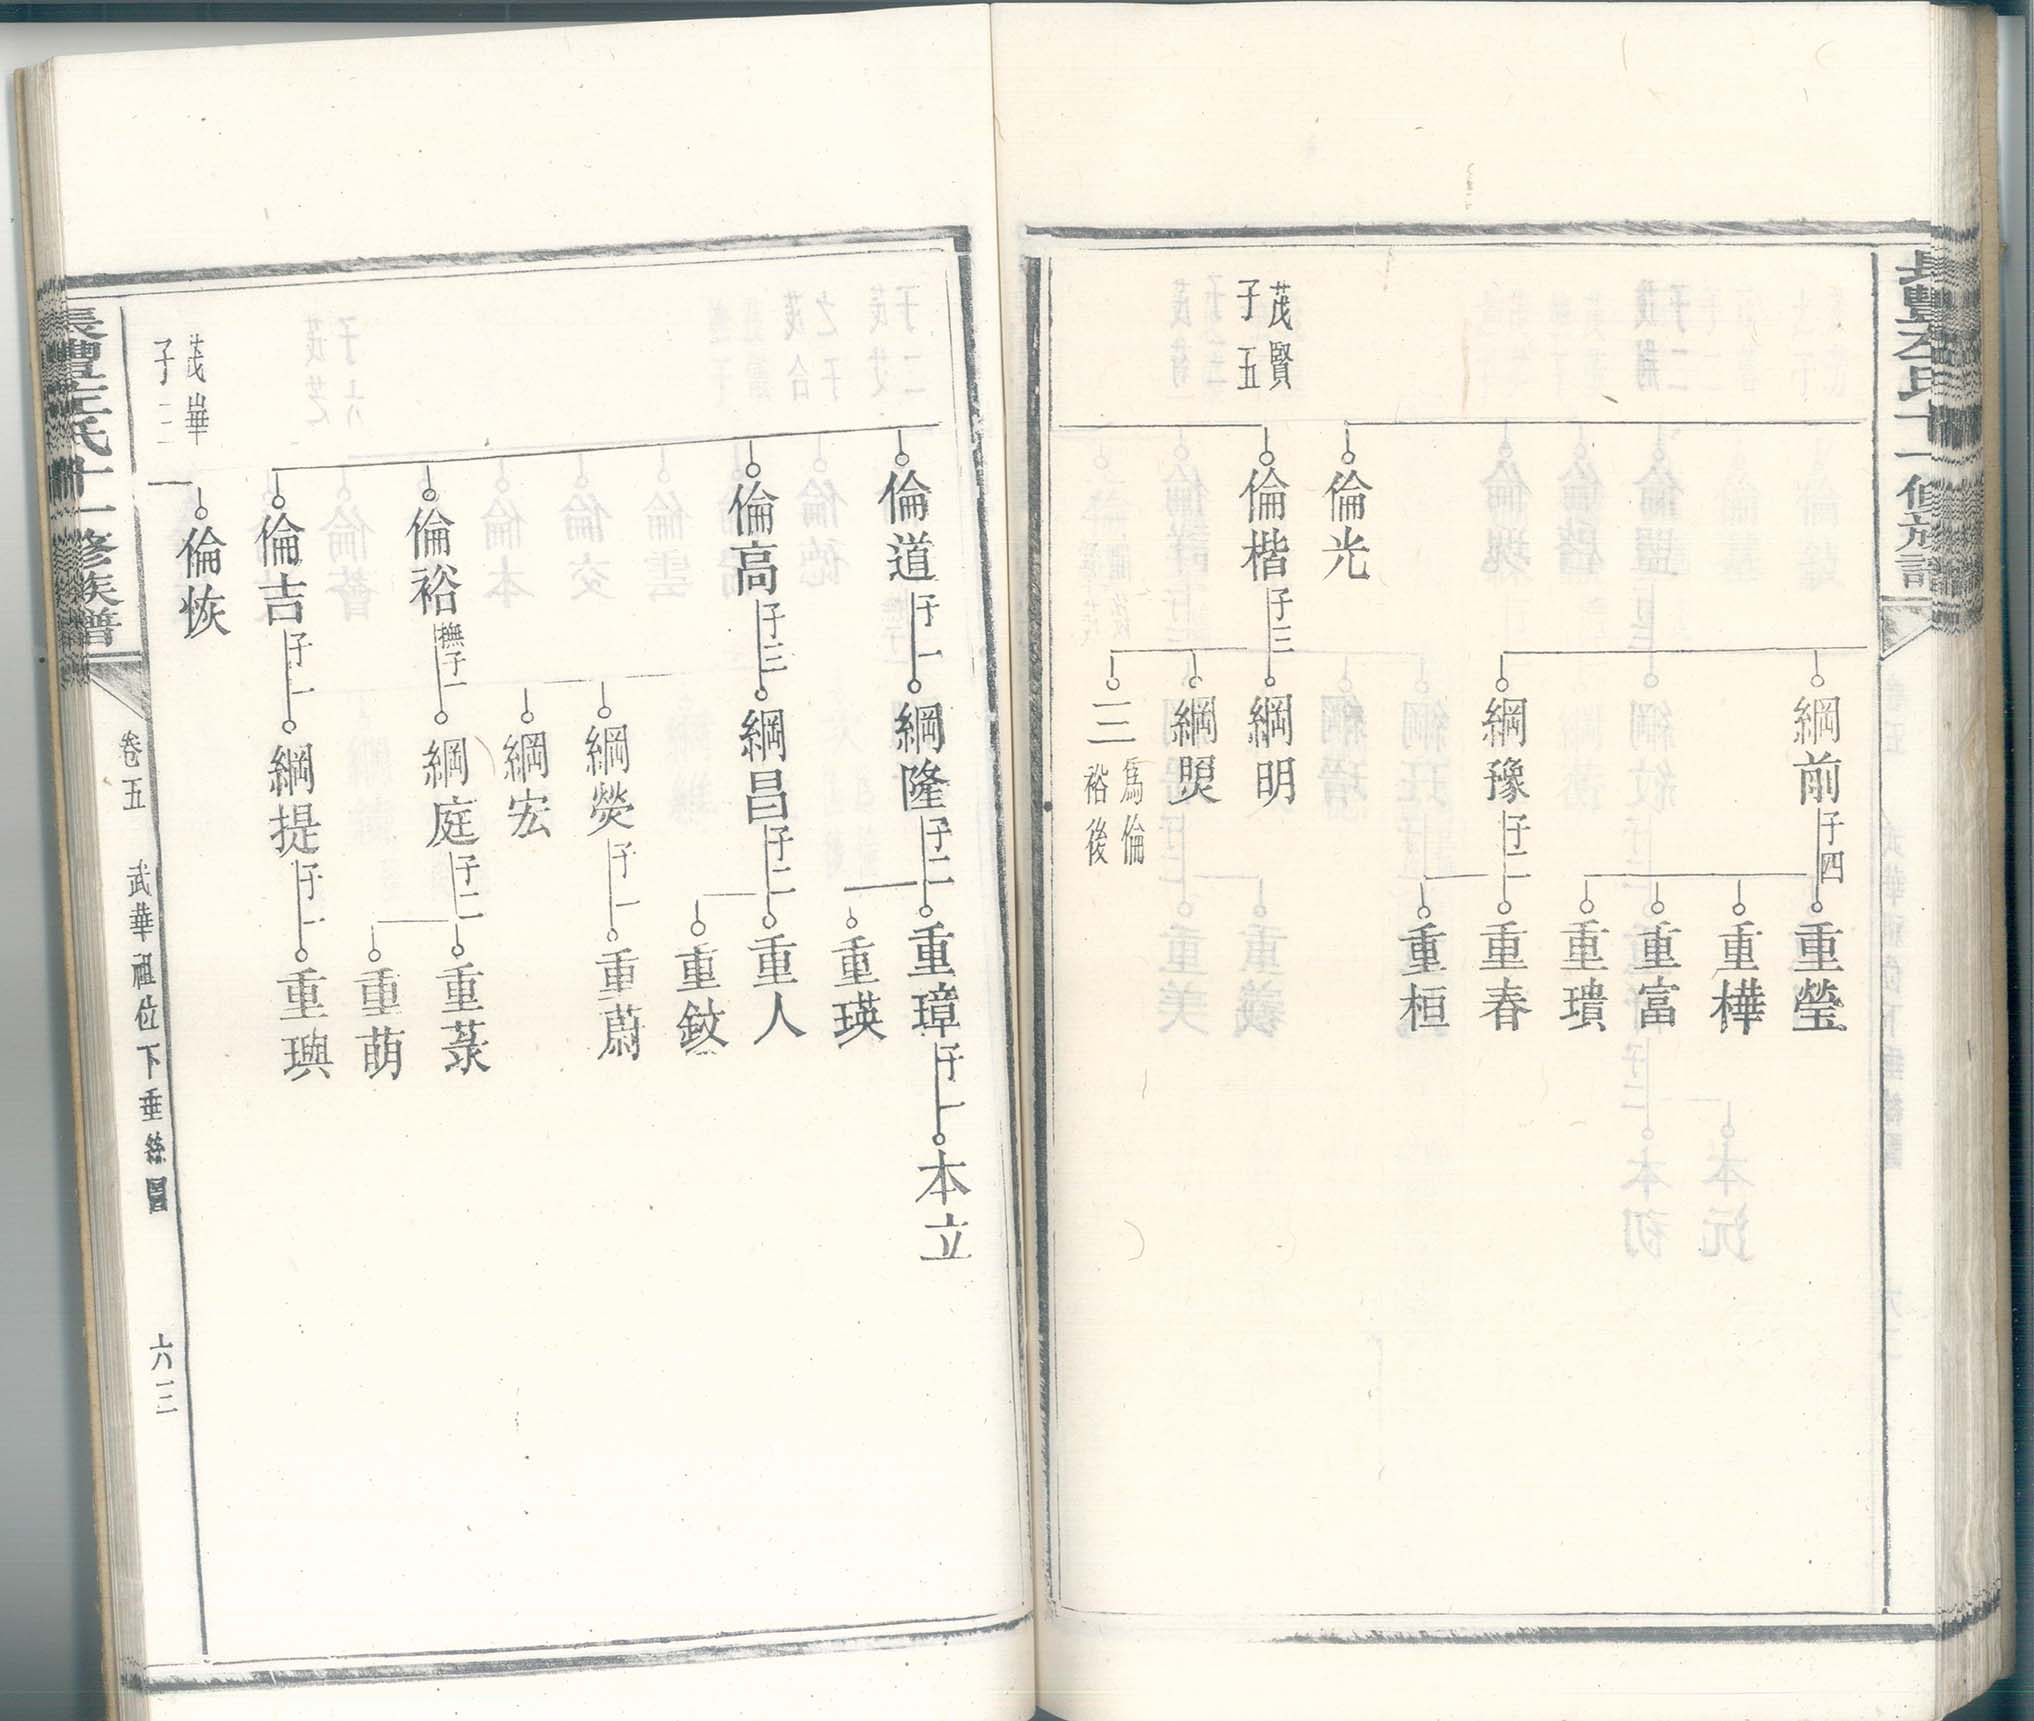 綱前
子四
重瑩
重樺
重富
重璝
綱豫
子二
重春
重桓
倫光
茂賢
子五
倫楷
子三
綱明
綱煚
三
為倫
裕後
倫道
子一
綱隆
子二
重璋
子一
本立
重瑛
倫高
子三
綱昌
子二
重人
重鈘
綱熒
子一
重蔚
綱宏
倫裕
撫子一
綱庭
子二
重菉
重萌
倫吉
子一
綱提
子一
重璵
茂華
子三
倫恢
十一修族譜
卷五
武華祖位下垂絲圖
六三